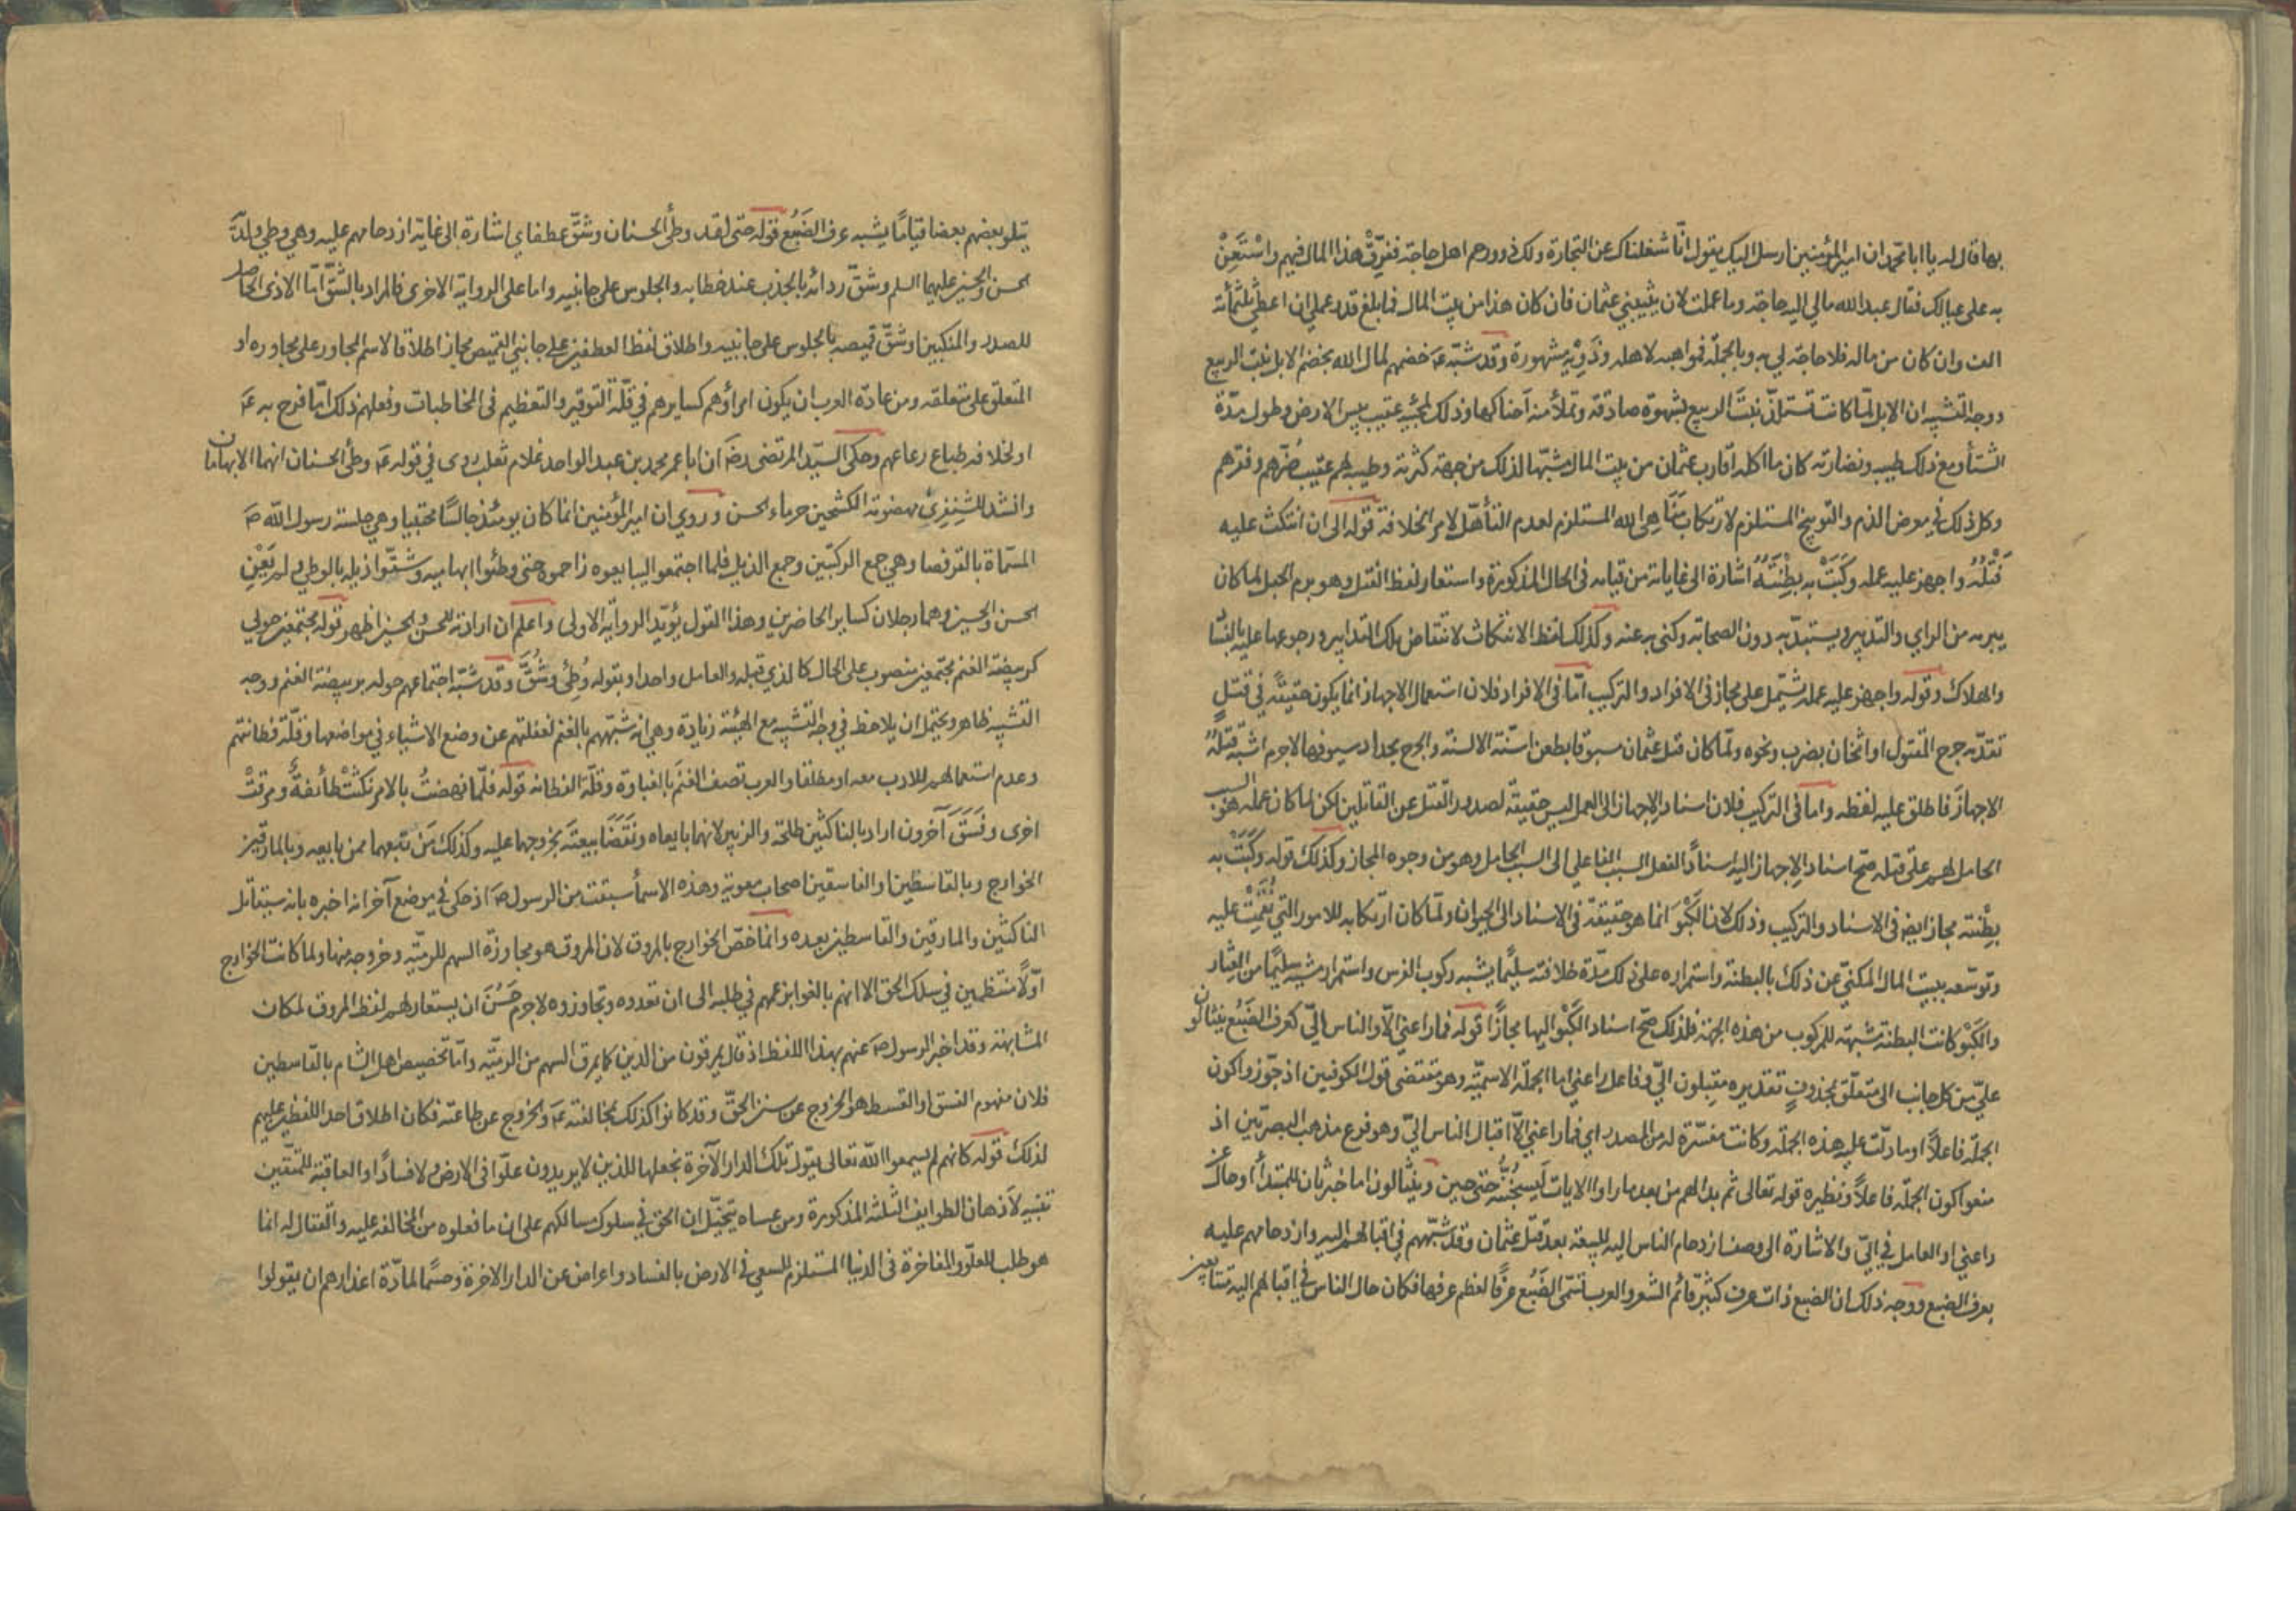 بها قال له يا ابا محمد ان امير المؤمنين ارسل اليك يقول انّا شغلناك عن التجارة ولك ذوو رحم اهل حاجة ففرّقْ هذا المال فيهم واسْتَعِنْ
به على عيالك فقال عبد الله مالي اليه حاجة وما عملت لان يثيبني عثمان فان كان هذا من بيت المال فما بلغ قدر عملي ان اعطي ثلثمأئة
الف وان كان من ماله فلا حاجة لي به وبالجملة فمواهبه لاهله وذَوِيْه مشهورة وقد شبّه عَ خضمهم لمال الله بخضم الابل نبت الربيع
ووجه التشبيه ان الابل لمّا كانت تستلذّ نبتَ الربيع بشهوة صادقة وتملأ منه آحناكها وذلك لمجيئه عقيب يبس الارض وطول مدّة
الشتأ ومع ذلك طيبه ونضارته كان ما اكله اقارب عثمان من بيت المال مشبّها لذلك من جهة كثرته وطيبه لهم عقيب ضُرّهم وفقرهم
وكل ذلك في معرض الذم والتوبيخ المستلزم لارتكاب مَنَاهِي الله المستلزم لعدم التأهّل لامر الخلافة قوله الى ان انتكث عليه
فَتْلُهُ واجهز عليه عمله وكَبَتْ به بِطْنَتُهُ اشارة الى غايات من قيامه في الحال المذكورة واستعار لفظ الفتل وهو برم الحبل لما كان
يبرمه من الراي والتدبير ويستبدّ به دون الصحابة وكنى به عنه وكذلك لفظ الانتكاث لانتقاض تلك التدابير ورجوعها عليه بالفسا
والهلاك وقوله واجهز عليه عمله يشتمل على مجاز في الافراد والتركيب امّا في الافراد فلان استعمال الاجهاز انما يكون حقيقةً في قتلٍ
تقدّمه جرح المقتول او اثخان بضرب ونحوه ولمّا كان قتل عثمان مسبوقا بطعن اسنّة الالسنة والجرح بحداد سيوفها لاجرم اشبه قتلهُ
الاجهازَ فاطلق عليه لفظه واما في التركيب فلان اسناد الاجهاز الى العمل ليس حقيقة لصدور القتل عن القاتلين لكن لما كان عمله هو السبب
الحامل لهم على قتله صحّ اسناد الاجهاز اليه اسنادًا لفعل السبب الفاعلي الى السبب الحامل وهو من وجوه المجاز وكذلك قوله وكَبَتْ به
بِطْنته مجاز ايضا في الاسناد والتركيب وذلك لان الكَبْوَ انما هو حقيقة في الاسناد الى الحيوان ولمّا كان ارتكابه للامور التي نُقِمَتْ عليه
وتوسّعه ببيت المال المكنيّ عن ذلك بالبطنة واستمراره على ذلك مدّة خلافته سليمًا يشبه ركوب الفرس واستمرار مشيه سليمًا من العِثار
والكَبْو كانت البطنة مشبهة للمركوب من هذه الجهة فلذلك صحّ اسناد الكَبْو اليها مجازًا قوله فما راعني الّا والناس اليّ كعرف الضَبُع ينثالون
عليّ من كل جانب الى متعلّق بمحذوفٍ تقديره مقبلون اليّ وفاعل راعني اما الجملة الاسميّة وهو مقتضى قول الكوفيين اذ جوّزوا كون
الجملة فاعلًا او ما دلّت عليه هذه الجملة وكانت مفسّرة له من المصدر اي فما راعني الّا اقبال الناس اليّ وهو فرع مذهب البصرّيين اذ
منعوا كون الجملة فاعلًا ونظيره قوله تعالى ثم بدا لهم من بعد ما راوا الايات لَيَسْجُنُنَّه حتى حين وينثالون اما خبر ثان للمبتدأ او حال عن
راعني او العامل في اليّ والاشارة الى وصف ازدحام الناس اليه للبيعة بعد قتل عثمان وقد شبّههم في اقبالهم اليه وازدحامهم عليه
بعرف الضبع ووجه ذلك ان الضبع ذات عرف كثير قائم الشعر والعرب تسمّى الضَبُع عرفًا لعظم عرفها فكان حال الناس في اقبالهم اليه متتابعين
يتلو بعضهم بعضا قيامًا يشبه عرف الضَبُع قوله حتى لقد وطئ الحسنان وشقّ عطفاي اشارة الى غاية ازدحامهم عليه وهي وطي ولديه
الحسن والحسين عليهما السلم وشقّ ردائه بالجذب عند خطابه والجلوس على جانبيه واما على الرواية الاخرى فالمراد بالشقّ امّا الاذى الحاصل
للصدر والمنكبين او شقّ قميصه بالجلوس على جانبيه واطلاق لفظ العطفين على جانبي القميص مجاز اطلاقا لاسم المجاور على مجاوره او
المتعلق على متعلقه ومن عادة العرب ان يكون امراؤهم كسايرهم في قلّة التوقير والتعظيم في المخاطبات وفعلهم ذلك امّا فرح به عَ
او لجلافة طباع رعاعهم وحكى السيّد المرتضى رضَ ان ابا عمر محمد بن عبد الواحد غلام ثعلب روى في قوله عَ وطئ الحسنان انهما الابهامان
وانشد للشَنفرى مهضومة الكشحين خرماء الحسن وروي ان امير المؤمنين انما كان يومئذ جالسًا محتبيا وهي جلسة رسول الله صَ
المسمّاة بالقرفصا وهي جمع الركبتين وجمع الذيل فلما اجتمعوا ليبايعوه زاحموه حتى وطئوا ابهاميه وشقّوا ذيله بالوطي ولم يَعْنِ
الحسن والحسين وهما رجلان كساير الحاضرين وهذا القول يؤيّد الرواية الاولى واعلم ان ارادته للحسن والحسين اظهر قوله مجتمعين حولي
كربيضة الغنم مجتمعين منصوب على الحال كالذي قبله والعامل واحد او بقوله وُطِئ وشُقّ وقد شبّه اجتماعهم حوله بربيضة الغنم ووجه
التشبيه ظاهر ويحتمل ان يلاحظ في وجه التشبيه مع الهيئة زيادة وهي انه شبّههم بالغنم لغفلتهم عن وضع الاشياء في مواضعها وقلّة فطانتهم
وعدم استعمالهم للادب معه او مطلقا والعرب تصف الغنم بالغباوة وقلّة الفطانة قوله فلمّا نهضتُ بالامر نكثتْ طائفةٌ ومرقتْ
اخرى وفَسَقَ آخرون اراد بالناكثين طلحة والزبير لانهما بايعاه ونَقَضَا بيعتَه بخروجهما عليه وكذلك مَن تبعهما ممن بايعه وبالمارقين
الخوارج وبالقاسطين او الفاسقين اصحاب معوية وهذه الاسمأ سبقت من الرسول صَ اذ حكى في موضع آخر انه اخبره بانه سيقاتل
الناكثين والمارقين والقاسطين بعده وانما خصّ الخوارج بالمروق لان المروق هو مجاوزة السهم للرميّة وخروجه منها ولما كانت الخوارج
اوّلًا منتظمين في سلك الحق الا انهم بالغوا بزعمهم في طلبه الى ان تعدوه وتجاوزوه لاجرم حَسُنَ ان يستعار لهم لفظ المروق لمكان
المشابهة وقد اخبر الرسول صَ عنهم بهذا اللفظ اذ قال يمرقون من الدين كما يمرق السهم من الرميّة وامّا تخصيص اهل الشام بالقاسطين
فلان مفهوم الفسق او القسط هو الخروج عن سنن الحقّ وقد كانوا كذلك بمخالفته عَ والخروج عن طاعته فكان اطلاق احد اللفظين عليهم
لذلك قوله كانهم لم يسمعوا الله تعالى يقول تلك الدار الآخرة نجعلها للذين لا يريدون علوّا في الارض ولا فسادًا والعاقبة للمتّقين
تنبيه لأذهان الطوايف الثلثة المذكورة ومن عساه يتخيّل ان الحق في سلوك مسالكهم على ان ما فعلوه من المخالفة عليه والقتال له انما
هو طلب للعلوّ والمفاخرة في الدنيا المستلزم للسعي في الارض بالفساد واعراض عن الدار الاخرة وحسمًا لمادّة اعذارهم ان يقولوا